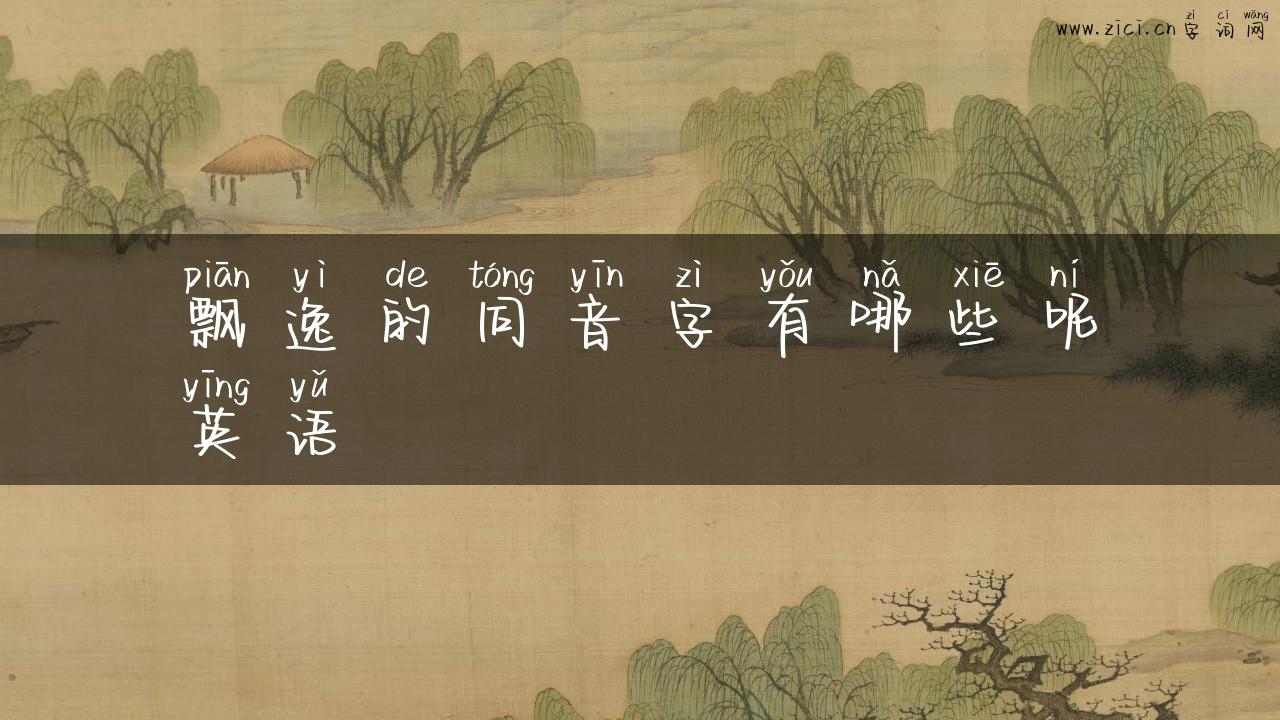 zì cí wǎng
www.zici.cn 字 词 网
piān yì de tóng yīn zì yǒu nǎ xiē ní
飘 逸 的 同 音 字 有 哪 些 呢
yīng yǔ
英 语